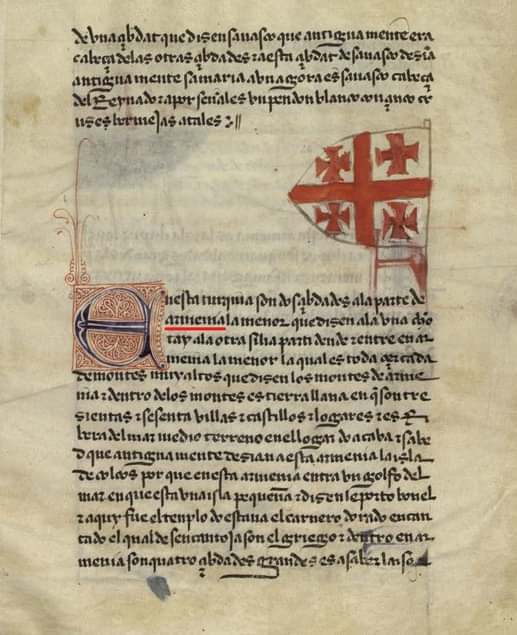 de vna çibdat que disen sauasco que antigua mente era
cabeça delas otras çibdades z aesta çibdat de sauasco desia
antigua mente samaria avn agora es sauasco cabeça
del Reynado z a por señales vn pendon blanco con çinco cru
ses bermejas atales
En esta turquia son dos çibdades ala parte de
armenia la menor que disen ala vna cho
tay ala otra
menia la menor la qual es toda çercada
de montes muy altos que disen los montes de arme
nia z dentro delos montes es tierra llana en que son tre
sientas z sesenta villas z castillos z logares z es Ri
bera del mar medio terreno en el logar do acaba z sabe
d que antigua mente desian a esta armenia la isla
de colcos por que en esta armenia entra vn golfo del
mar en que esta vna isla pequeña z disen le porto bonel
z aquy fue el templo do estaua el carnero dorado encan
tado el qual desencanto jason el griego z dentro en ar
menia son quatro çibdades grandes es a saber laiso